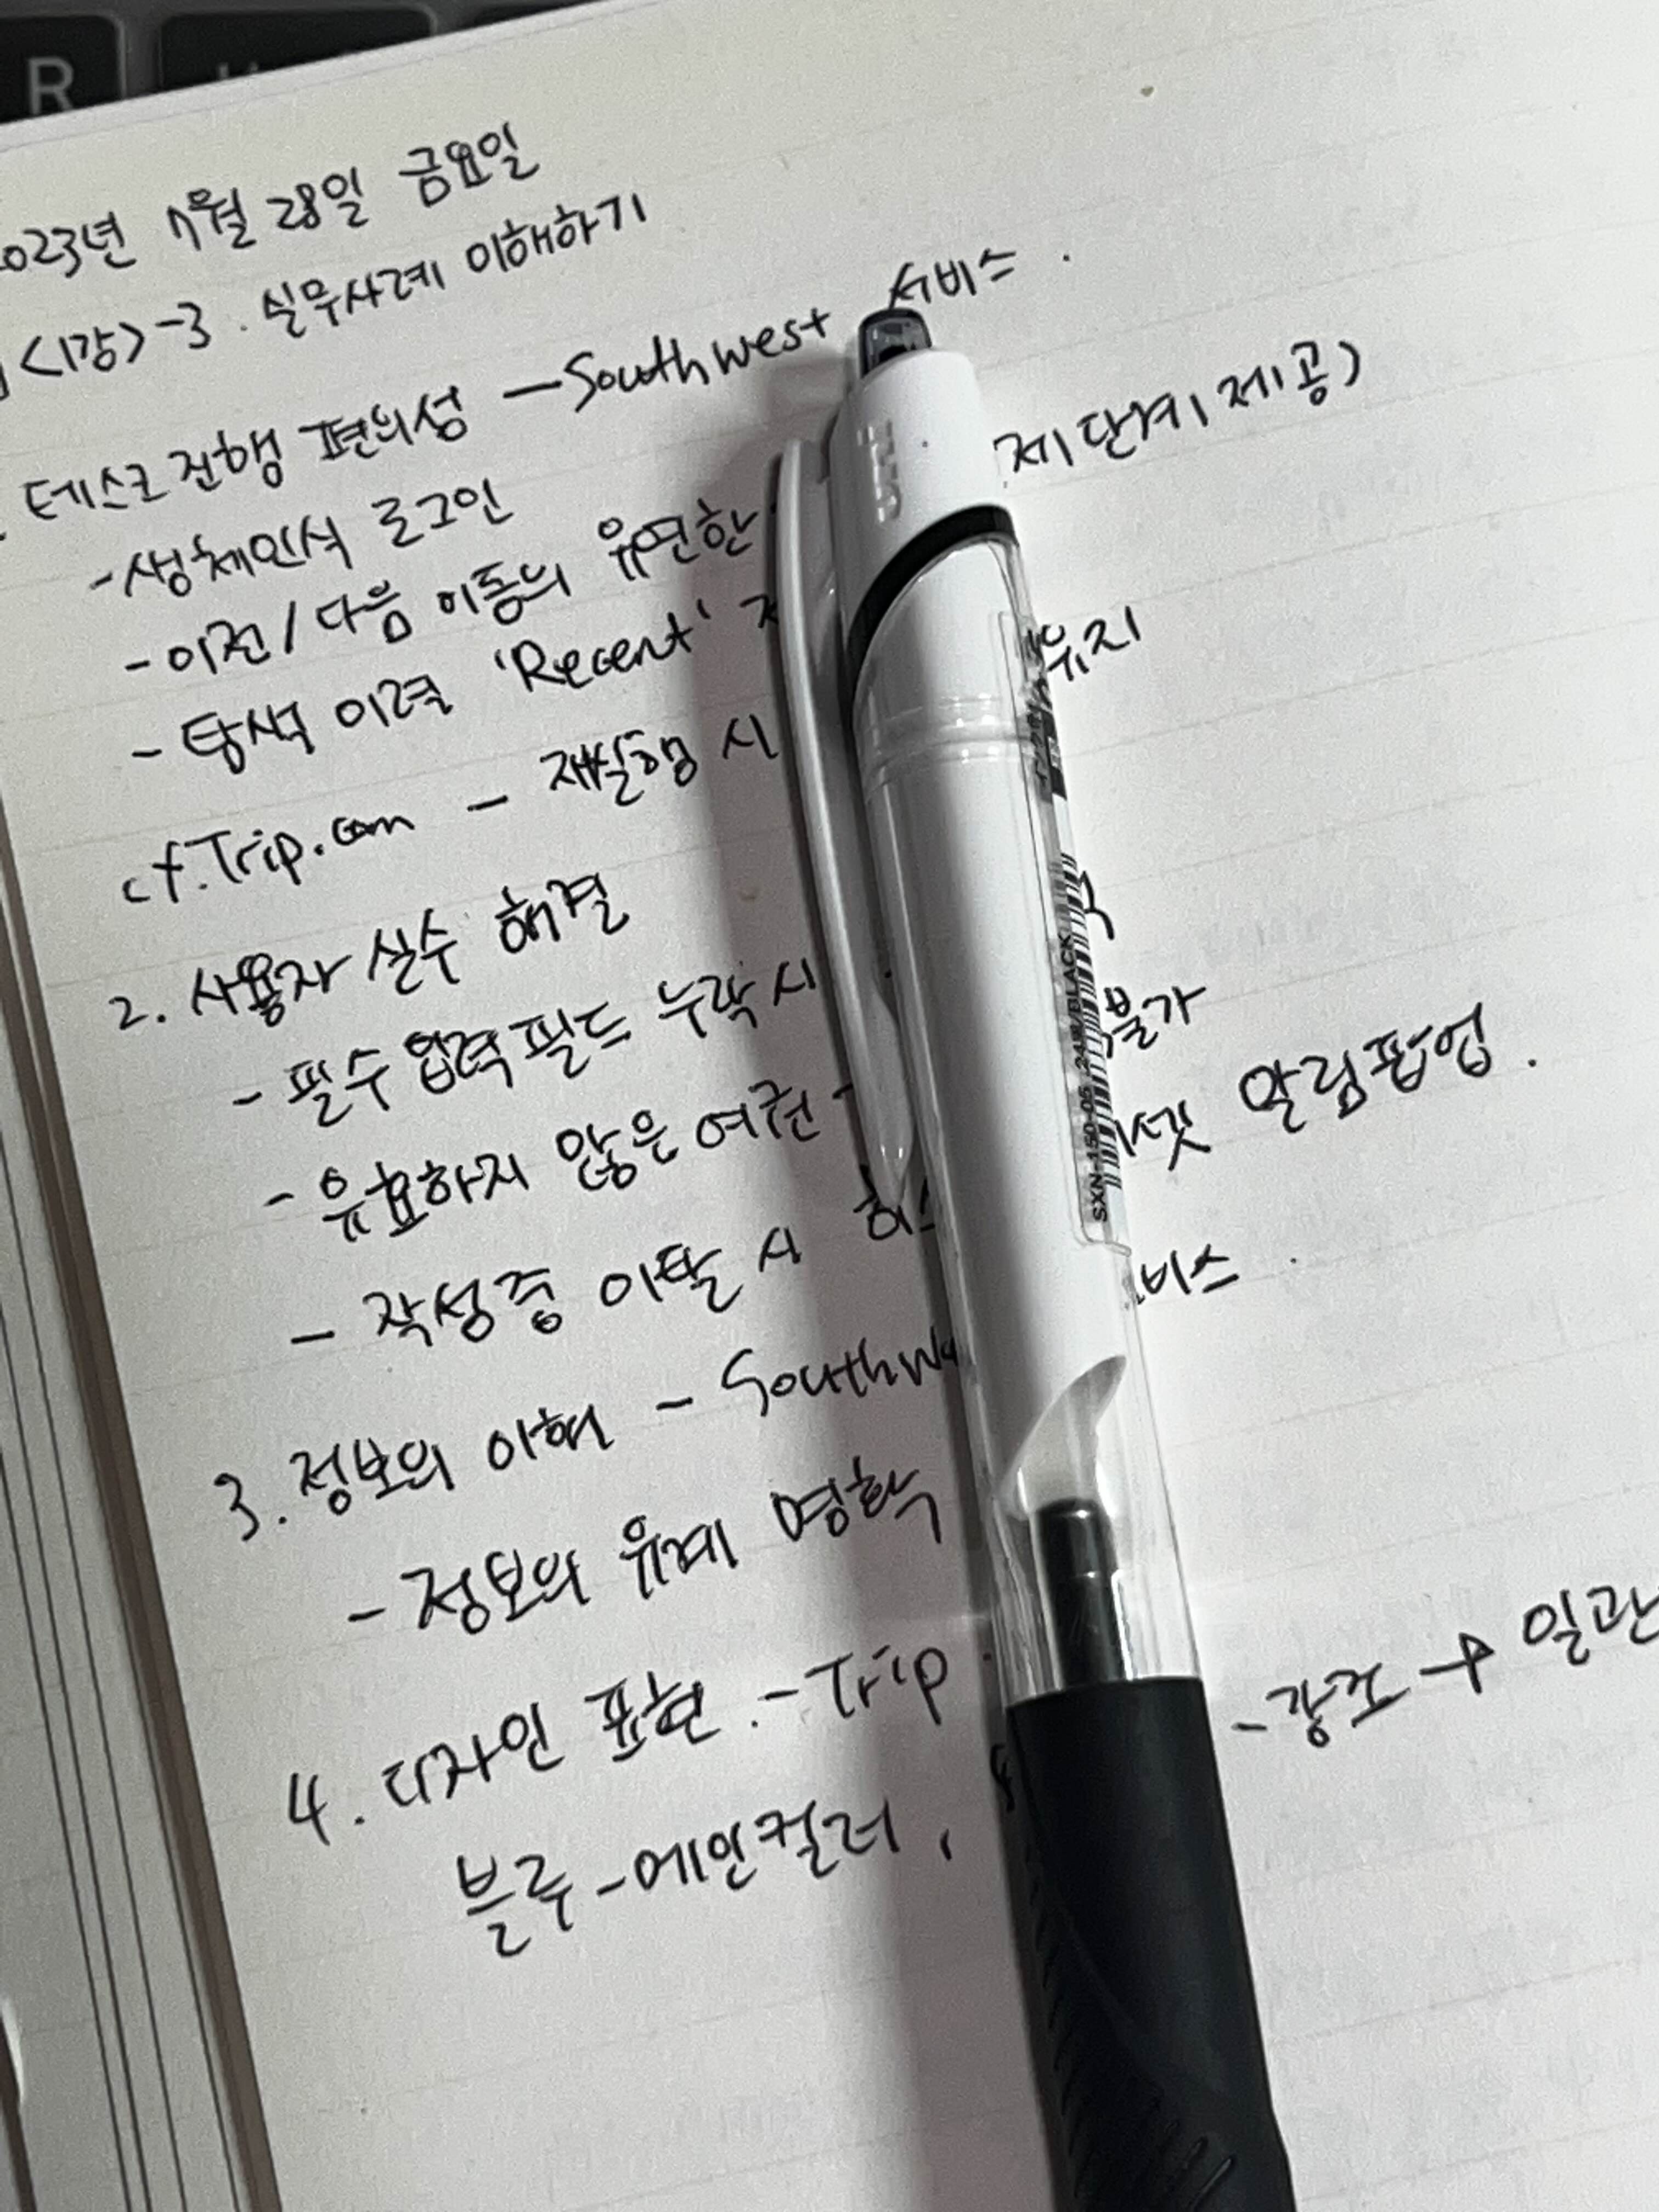 R
2023년 7월 28일 금요일
<1강>-3. 실무사례 이해하기
테스크 진행 편의성 — Southwest 서비스.
-생체인식 로그인
-이전/다음 이동의 유연한 제단계 제공)
- 탐색 이력 'Recent'
cf.Trip.com - 재실행 시 유지
2. 사용자 실수 해결
- 필수 입력 필드 누락 시
- 유효하지 않은 여권 - 불가
- 작성 중 이탈 시 알림팝업.
3. 정보의 이해 - 비스.
- 정보의 위계 명확
4. 디자인 표현 - Trip
블루 -메인컬러, -강조 → 일관
uni
SXN-150-05
BLACK